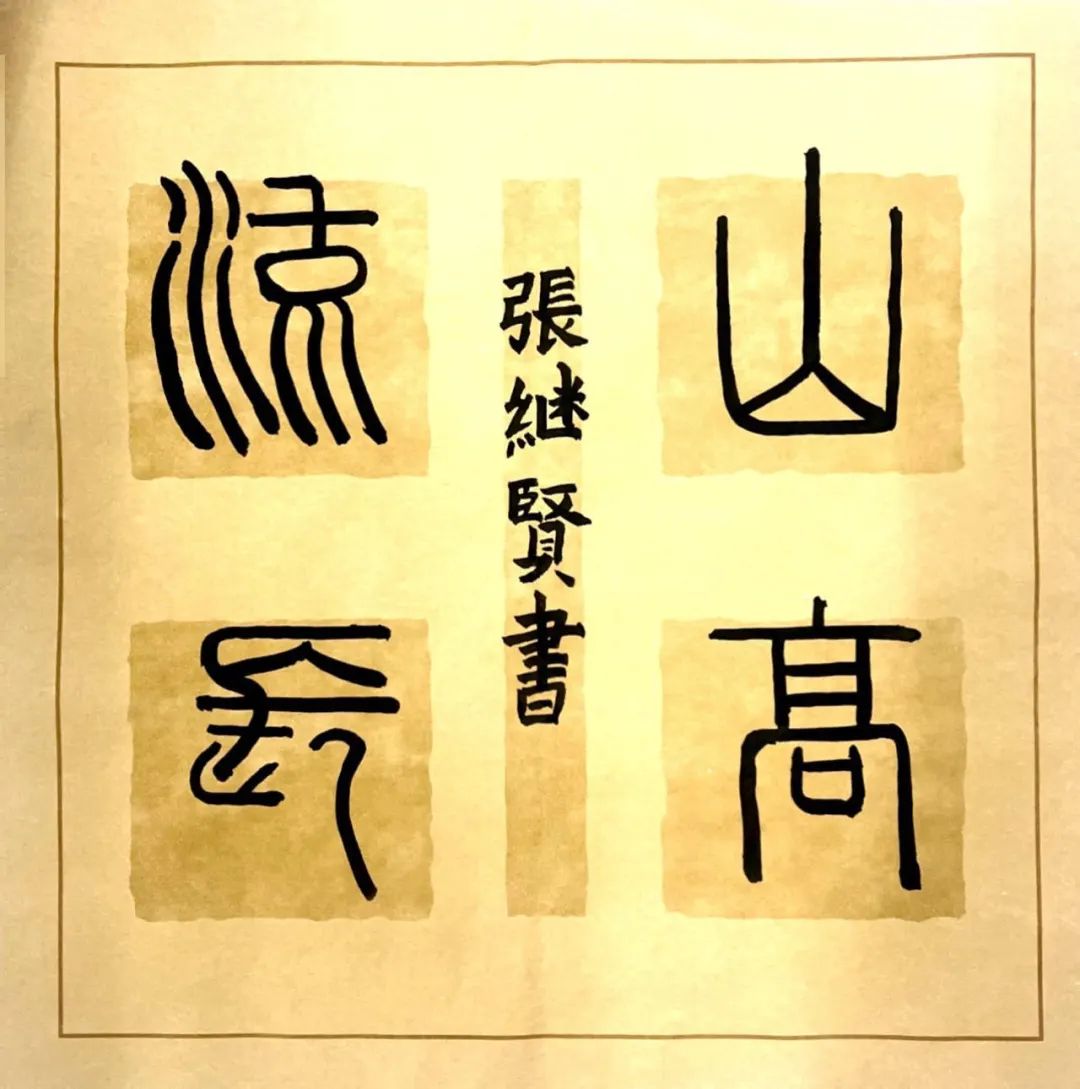 山高
張継賢書
流長